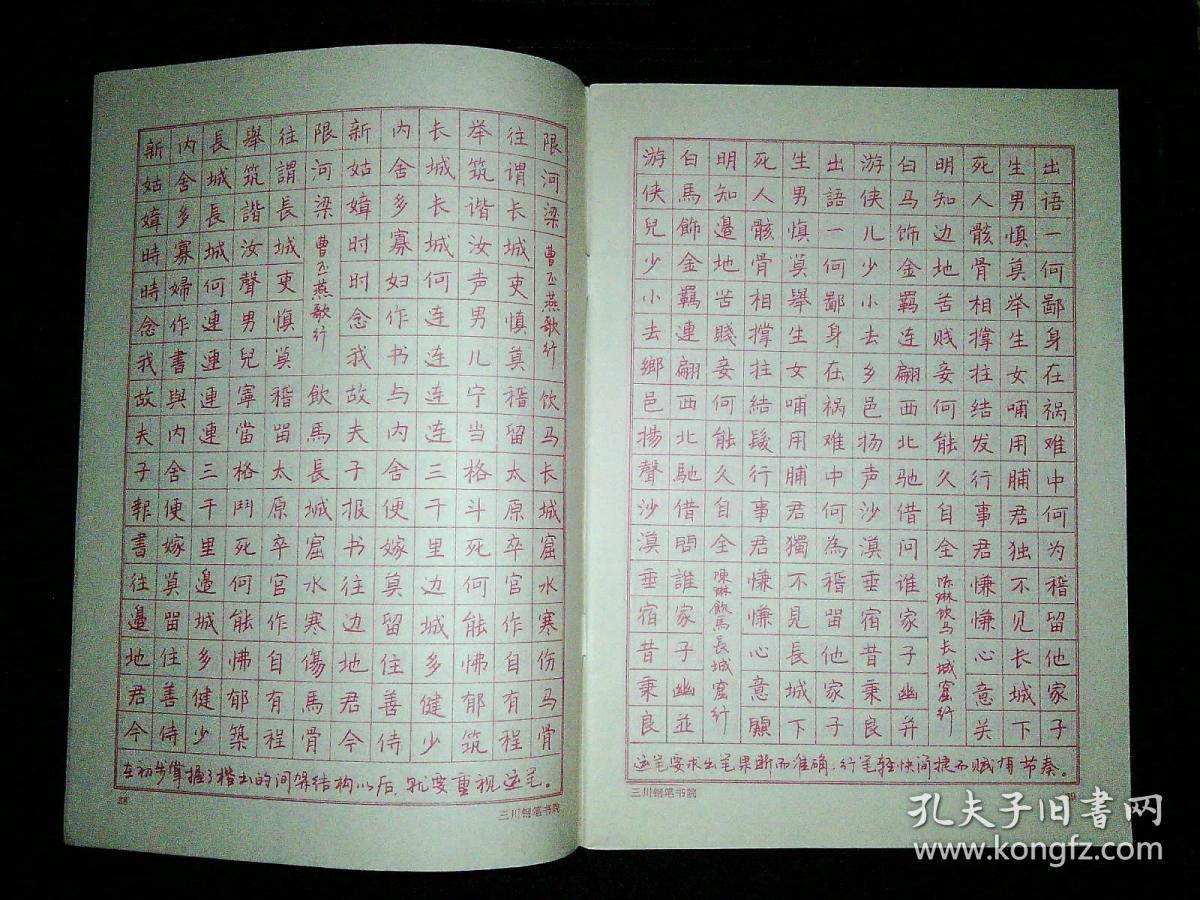 限河梁 曹丕燕歌行 饮马长城窟水寒伤马骨
往谓长城吏慎莫稽留太原卒官作自有程
举筑谐汝声男儿宁当格斗死何能怫郁筑
长城长城何连连连连三千里边城多健少
内舍多寡妇作书与内舍便嫁莫留住善侍
新姑嫜时时念我故夫子报书往边地君今
限河梁 曹丕燕歌行 飲馬長城窟水寒傷馬骨
往謂長城吏慎莫稽畱太原卒官作自有程
舉筑諧汝聲男兒寧當格鬥死何能怫郁築
長城長城何連連連連三千里邊城多健少
内舍多寡婦作書與内舍便嫁莫畱住善侍
新姑嫜時時念我故夫子報書往邊地君今
在初步掌握了楷书的间架结构以后，就要重视运笔。
38
三川钢笔书院
出语一何鄙身在祸难中何为稽留他家子
生男慎莫举生女哺用脯君独不见长城下
死人骸骨相撑拄结发行事君慊慊心意关
明知边地苦贱妾何能久自全 陈琳饮马长城窟行
白马饰金羁连翩西北驰借问谁家子幽并
游侠儿少小去乡邑扬声沙漠垂宿昔秉良
出語一何鄙身在祸难中何為稽畱他家子
生男慎莫舉生女哺用脯君獨不見長城下
死人骸骨相撐拄結髮行事君慊慊心意關
明知邊地苦賤妾何能久自全 陳琳飲馬長城窟行
白馬飾金羈連翩西北馳借問誰家子幽並
游侠兒少小去鄉邑揚聲沙漠垂宿昔秉良
运笔要求出笔果断而准确，行笔轻快简捷而赋有节奏。
三川钢笔书院
39
孔夫子旧书网
www.kongfz.com